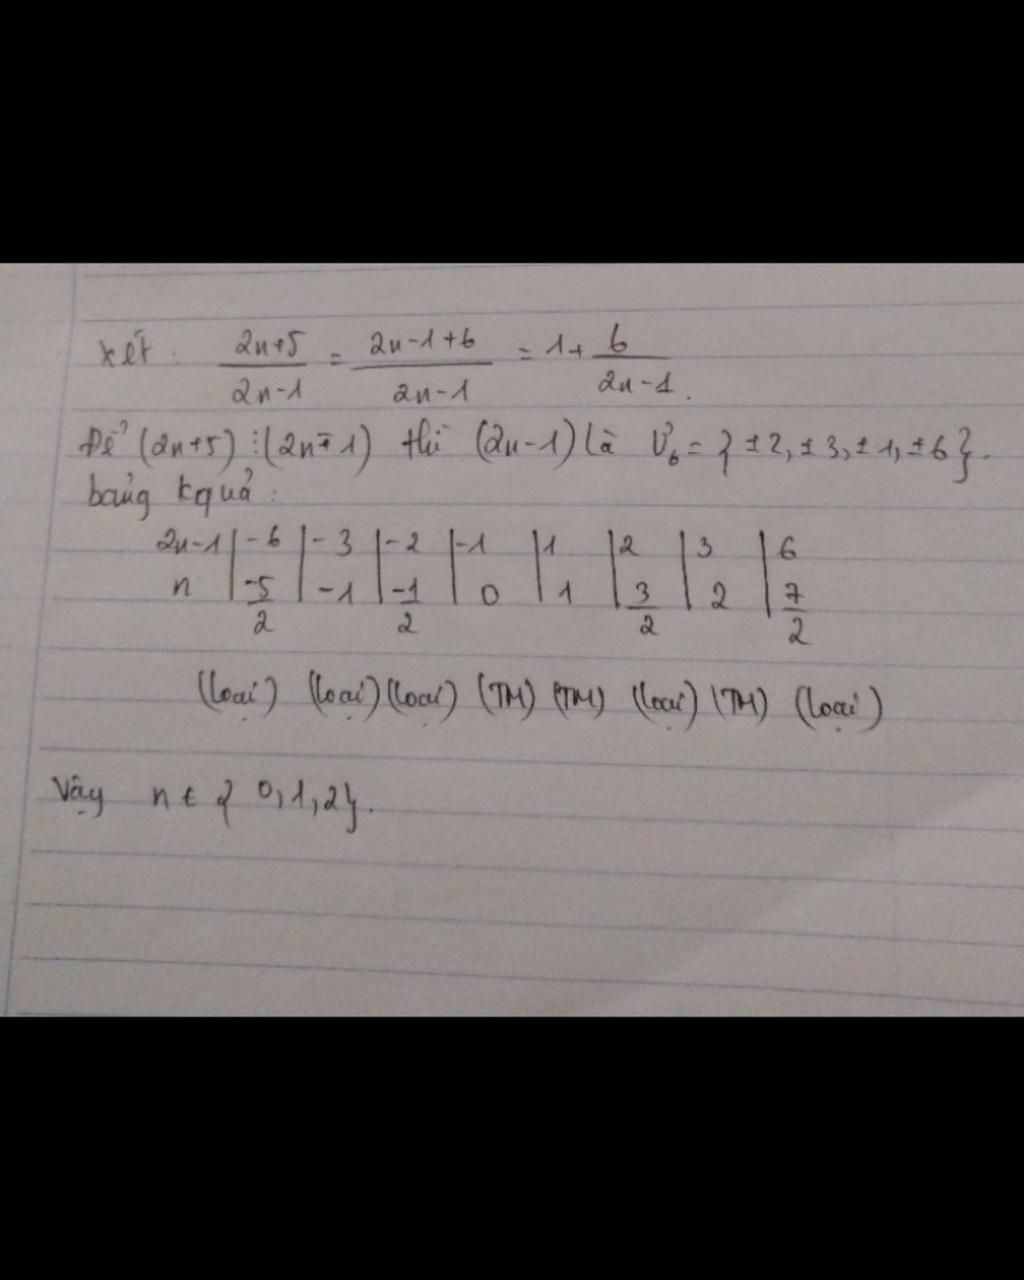 xét: 2n+5/2n-1 = 2n-1+6/2n-1 = 1+ 6/2n-1.
Để (2n+5) ⋮ (2n-1) thì (2n-1) là Ư6 = {±2, ±3, ±1, ±6}.
bảng kquả:
2n-1 | -6 | -3 | -2 | -1 | 1 | 2 | 3 | 6
n | -5/2 | -1 | -1/2 | 0 | 1 | 3/2 | 2 | 7/2
(loại) (loại) (loại) (TM) (TM) (loại) (TM) (loại)
Vậy n ∈ { 0, 1, 2}.